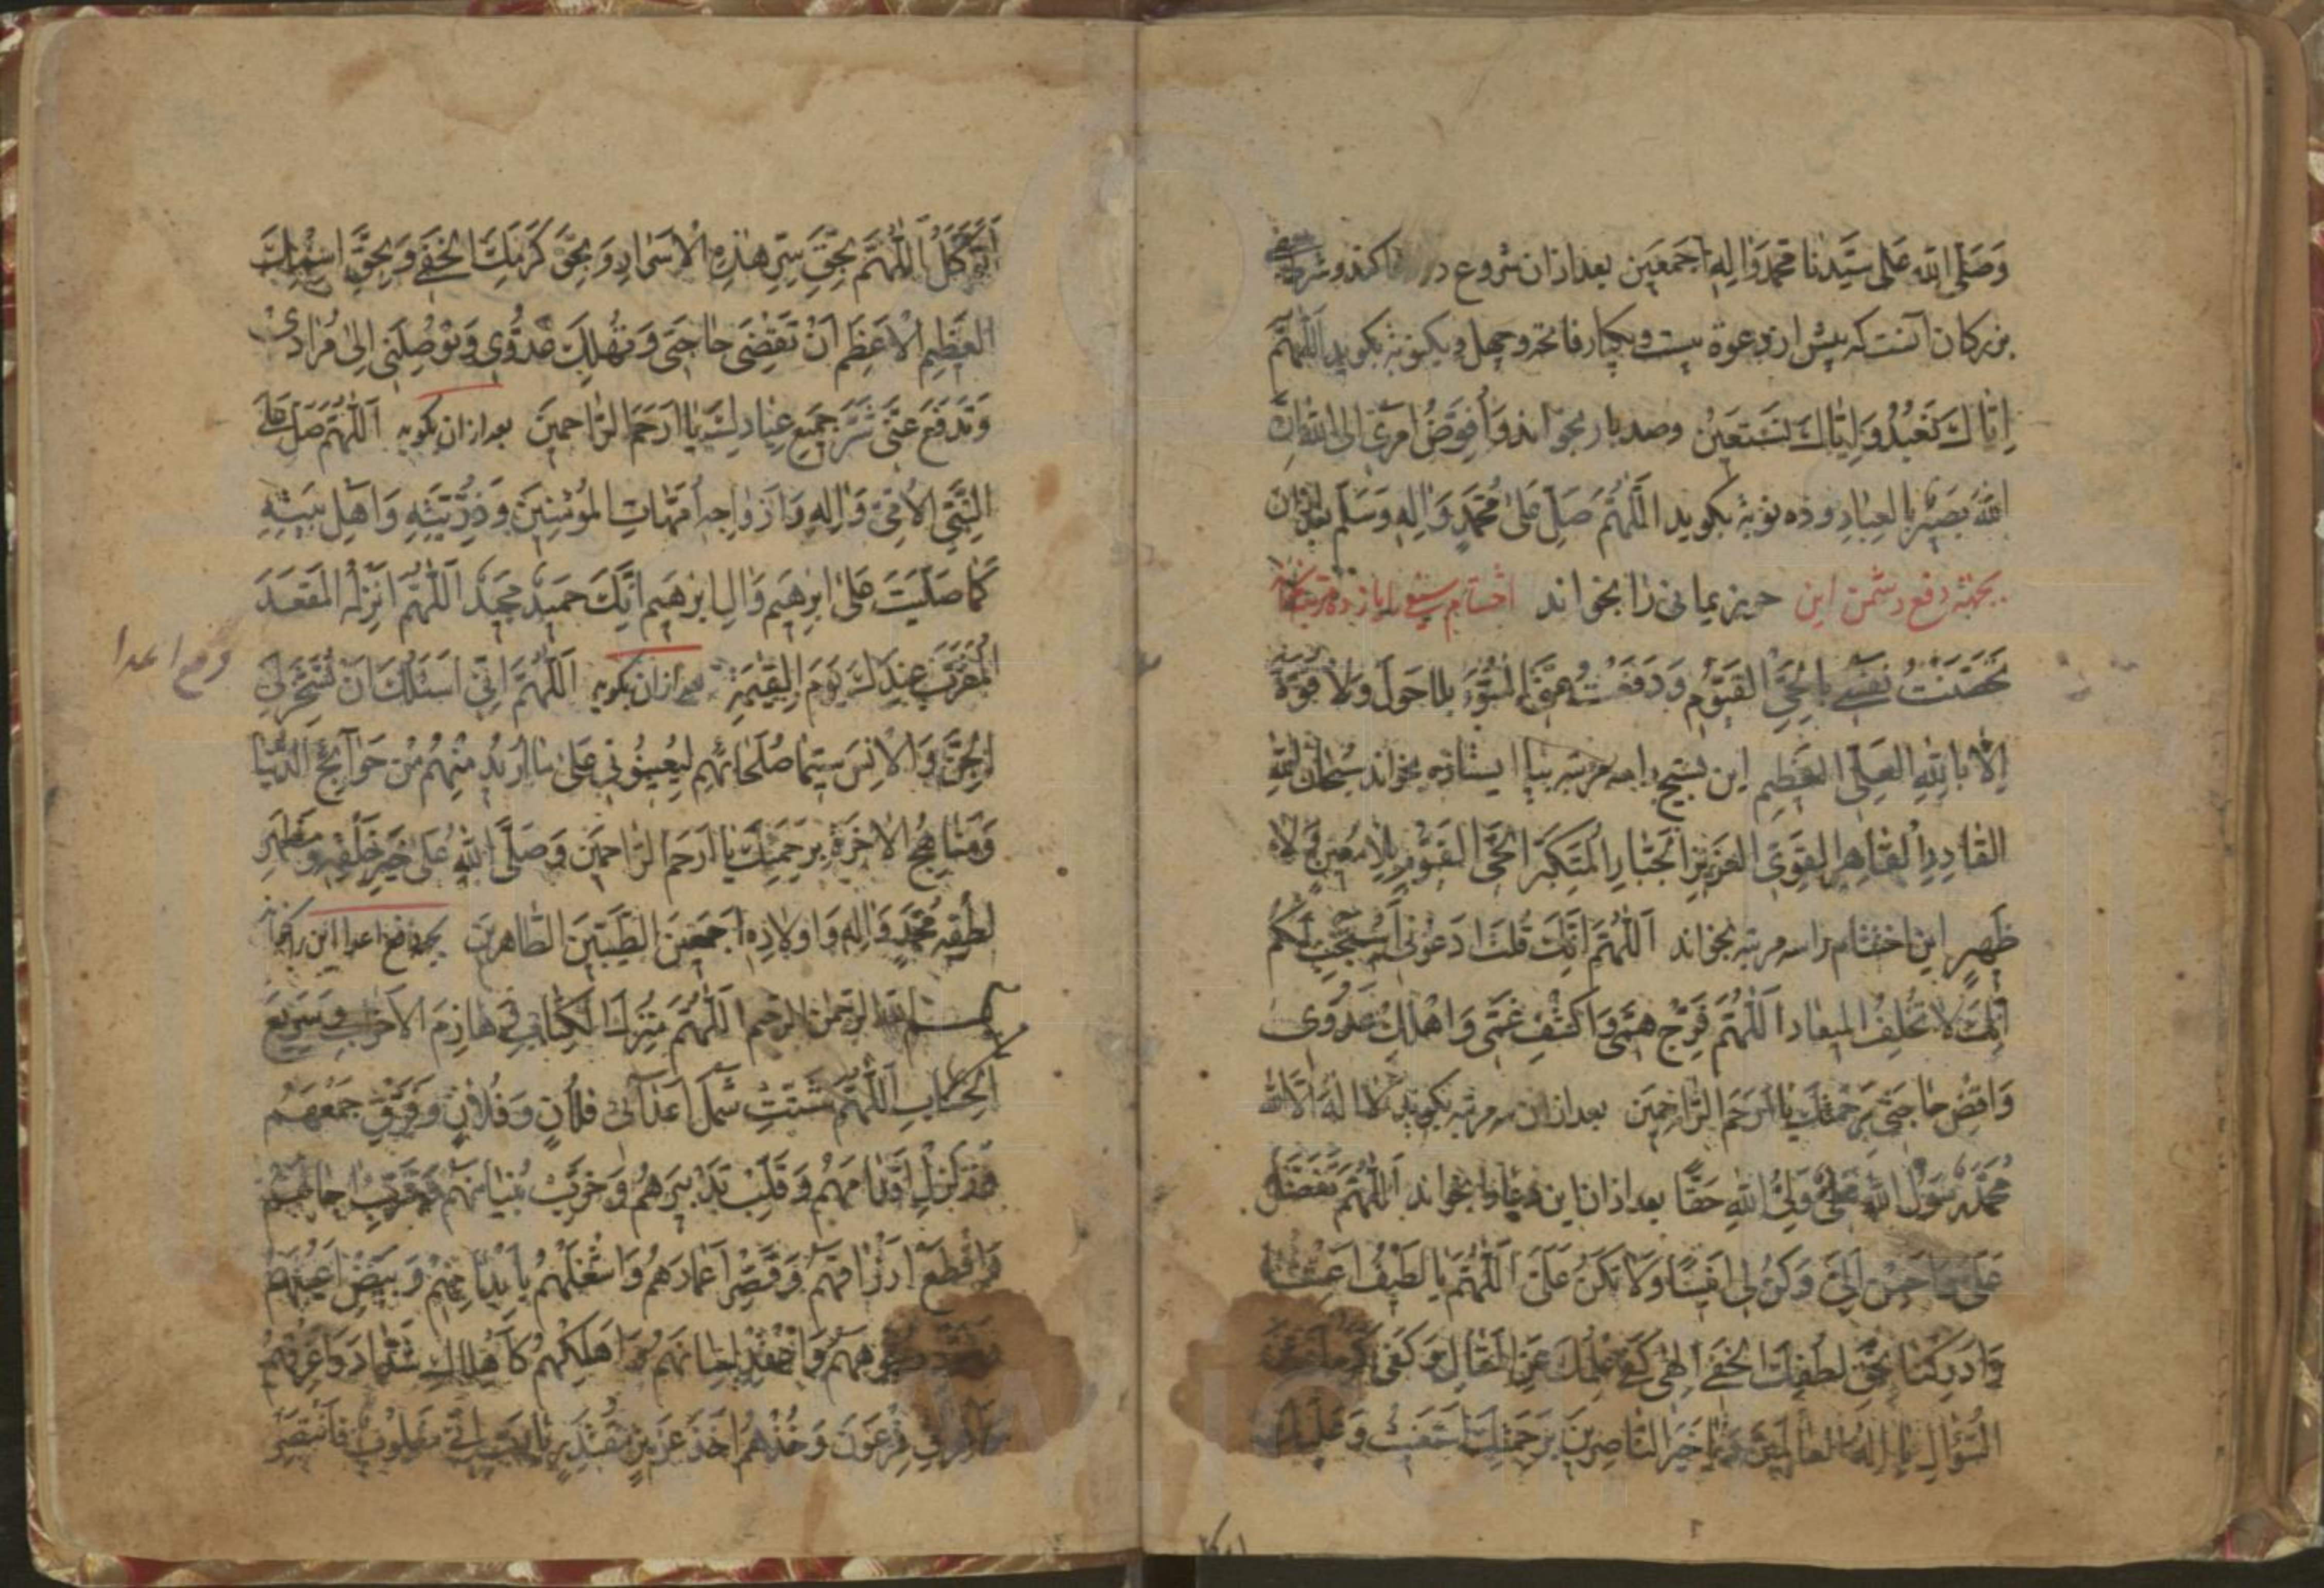 وَصَلَّى اللّٰه عَلٰى سَيِّدِنَا مُحَمَّدٍ وَاٰلِهِ اَجْمَعِين بعد از ان شروع در كند و شرط
بزركان آنست كه پيش از دعوة بيست و يكبار فاتحه و چهل و يكنوبة بكويد اللّٰهُمَّ
اِيَّاكَ نَعْبُدُ وَاِيَّاكَ نَسْتَعِينُ وصد بار بخواند وَاُفَوِّضُ اَمْرِى اِلَى اللّٰهِ اِنَّ
اللّٰهَ بَصِيرٌ بِالْعِبَادِ و ده نوبة بكويد اللّٰهُمَّ صَلِّ عَلٰى مُحَمَّدٍ وَاٰلِهِ وَسَلِّم بعد از ان
بجهته دفع دشمن اين حرز يمانى را بخواند اختتام سيفى
تَحَصَّنْتُ نَفْسِى بِالْحَىِّ الْقَيُّومِ وَدَفَعْتُ عَنِّى السُّوءَ بِلا حَوْلَ وَلا قُوَّةَ
اِلَّا بِاللّٰهِ الْعَلِىِّ الْعَظِيمِ اين تسبيح را سه مرتبه بپا ايستاده بخواند سُبْحَانَ اللّٰهِ
الْقَادِرِ الْقَاهِرِ الْقَوِىِّ الْعَزِيزِ الْجَبَّارِ الْمُتَكَبِّرِ الْحَىِّ الْقَيُّومِ بِلَا مُعِينٍ وَلَا
ظَهِيرٍ اين اختتام را سه مرتبه بخواند اَللّٰهُمَّ اِنَّكَ قُلْتَ ادْعُونِى اَسْتَجِبْ لَكُمْ
اِنَّكَ لَا تُخْلِفُ الْمِيعَادَ اَللّٰهُمَّ فَرِّجْ هَمِّى وَاكْشِفْ غَمِّى وَاَهْلِكْ عَدُوِّى
وَاقْضِ حَاجَتِى بِرَحْمَتِكَ يَا اَرْحَمَ الرَّاحِمِينَ بعد از ان سه مرتبه بكويد لَا اِلٰهَ اِلَّا اللّٰهُ
مُحَمَّدٌ رَسُولُ اللّٰهِ عَلِىٌّ وَلِىُّ اللّٰهِ حَقًّا بعد از ان اين دعا را بخواند اَللّٰهُمَّ تَفَضَّلْ
عَلَىَّ وَاَحْسِنْ اِلَىَّ وَكُنْ لِى اَنِيسًا وَلَا تَكُنْ عَلَىَّ اَللّٰهُمَّ يَا لَطِيفُ اَغِثْنَا
وَاَدْرِكْنَا بِحَقِّ لُطْفِكَ الْخَفِىِّ اِلٰهِى كَفٰى عِلْمُكَ عَنِ الْمَقَالِ وَكَفٰى كَرَمُكَ عَنِ
السُّؤَالِ يَا اِلٰهَ الْعَالَمِينَ وَيَا خَيْرَ النَّاصِرِينَ بِرَحْمَتِكَ اَسْتَغِيثُ وَعَلَيْكَ
اَتَوَكَّلُ اَللّٰهُمَّ بِحَقِّ سِرِّ هٰذِهِ الْاَسْرَارِ وَبِحَقِّ كَرَمِكَ الْخَفِىِّ وَبِحَقِّ اسْمِكَ
الْعَظِيمِ الْاَعْظَمِ اَنْ تَقْضِىَ حَاجَتِى وَتُهْلِكَ عَدُوِّى وَتُوصِلَنِى اِلٰى مُرَادِى
وَتَدْفَعَ عَنِّى شَرَّ جَمِيعِ عِبَادِكَ يَا اَرْحَمَ الرَّاحِمِينَ بعد از ان بكويد اَللّٰهُمَّ صَلِّ عَلَى
النَّبِىِّ الْاُمِّىِّ وَاٰلِهِ وَاَزْوَاجِهِ اُمَّهَاتِ الْمُؤْمِنِينَ وَذُرِّيَّتِهِ وَاَهْلِ بَيْتِهِ
كَمَا صَلَّيْتَ عَلٰى اِبْرٰهِيمَ وَاٰلِ اِبْرٰهِيمَ اِنَّكَ حَمِيدٌ مَجِيدٌ اَللّٰهُمَّ اَنْزِلْهُ الْمَقْعَدَ
الْمُقَرَّبَ عِنْدَكَ يَوْمَ الْقِيٰمَةِ بعد از ان بكويد اَللّٰهُمَّ اِنِّى اَسْئَلُكَ اَنْ تُسَخِّرَ لِى
دفع اعدا
الْجِنَّ وَالْاِنْسَ سِيَّمَا صُلَحَائِهِمْ لِيُعِينُونِى عَلٰى مَا اُرِيدُ مِنْهُمْ مِنْ حَوَائِجِ الدُّنْيَا
وَمَنَاهِجِ الْاٰخِرَةِ بِرَحْمَتِكَ يَا اَرْحَمَ الرَّاحِمِينَ وَصَلَّى اللّٰهُ عَلٰى خَيْرِ خَلْقِهِ وَمَظْهَرِ
لُطْفِهِ مُحَمَّدٍ وَاٰلِهِ وَاَوْلَادِهِ اَجْمَعِينَ الطَّيِّبِينَ الطَّاهِرِينَ بجهة دفع اعدا اين را بخواند
بسم اللّٰه الرحمن الرحيم اَللّٰهُمَّ مُنْزِلَ الْكِتَابِ هَازِمَ الْاَحْزَابِ وَسَرِيعَ
الْحِسَابِ اَللّٰهُمَّ شَتِّتْ شَمْلَ اَعْدَائِى فُلَانٍ وَفُلَانٍ وَفَرِّقْ جَمْعَهُمْ
وَزَلْزِلْ اَقْدَامَهُمْ وَقَلِّبْ تَدْبِيرَهُمْ وَخَرِّبْ بُنْيَانَهُمْ وَقَرِّبْ اٰجَالَهُمْ
وَاقْطَعْ اَرْزَاقَهُمْ وَقَصِّرْ اَعْمَارَهُمْ وَاشْغَلْهُمْ بِاَبْدَانِهِمْ وَبَيِّضْ اَعْيُنَهُمْ
وُجُوهَهُمْ وَاَهْلِكْهُمْ كَاَهْلَاكِ شَدَّادَ وَاَغْرِقْهُمْ
فِرْعَوْنَ وَخُذْهُمْ اَخْذَ عَزِيزٍ مُقْتَدِرٍ يَا رَبِّ اِنِّى مَغْلُوبٌ فَانْتَصِرْ